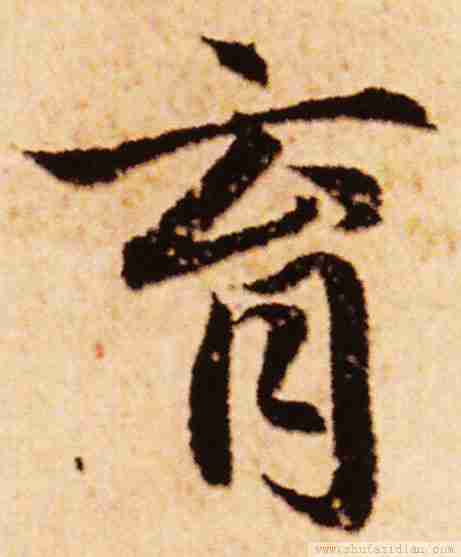 育
www.shufazidian.com